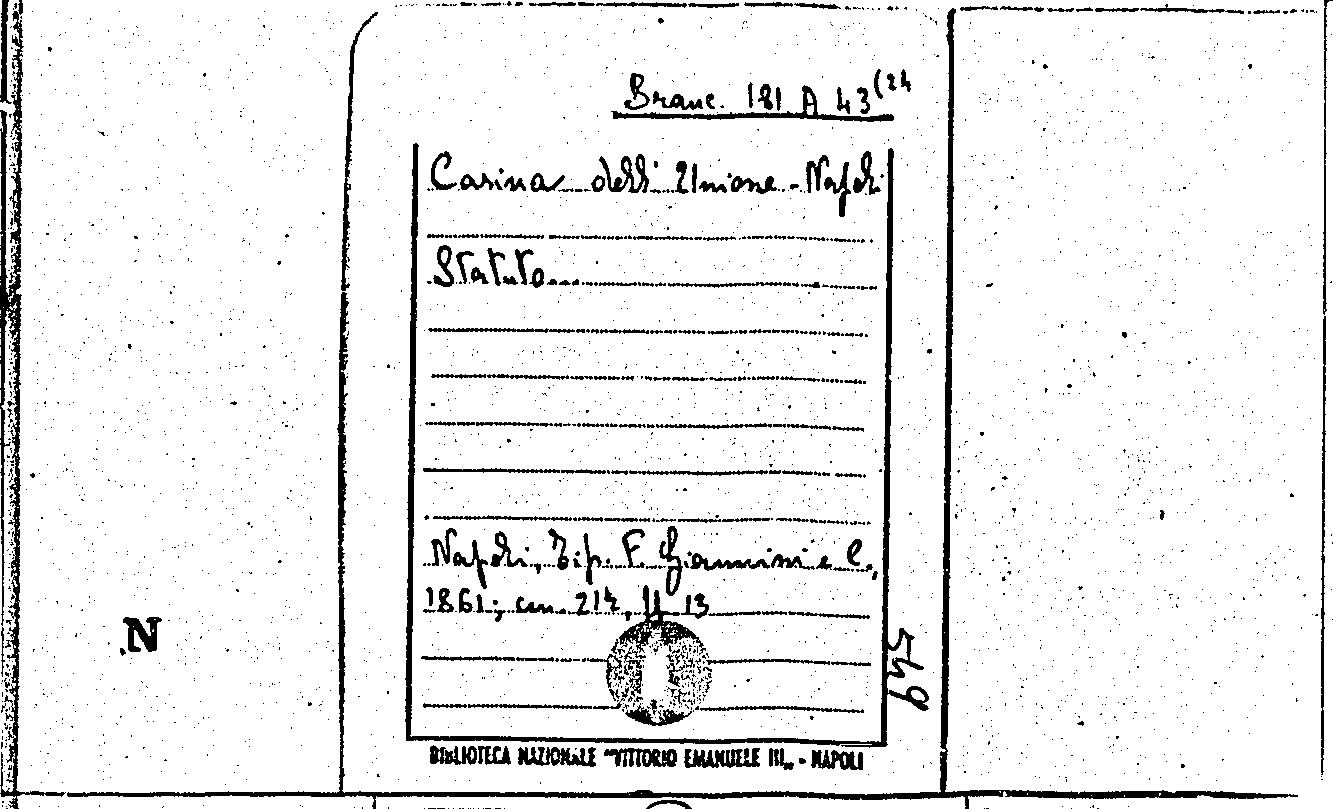 Branc. 181 A 43(24
Casina dell'Unione - Napoli
Statuto...
Napoli, Tip. F. Giannini e C.,
1861; cm. 21½, pp. 13
549
N
BIBLIOTECA NAZIONALE "VITTORIO EMANUELE III„ - NAPOLI